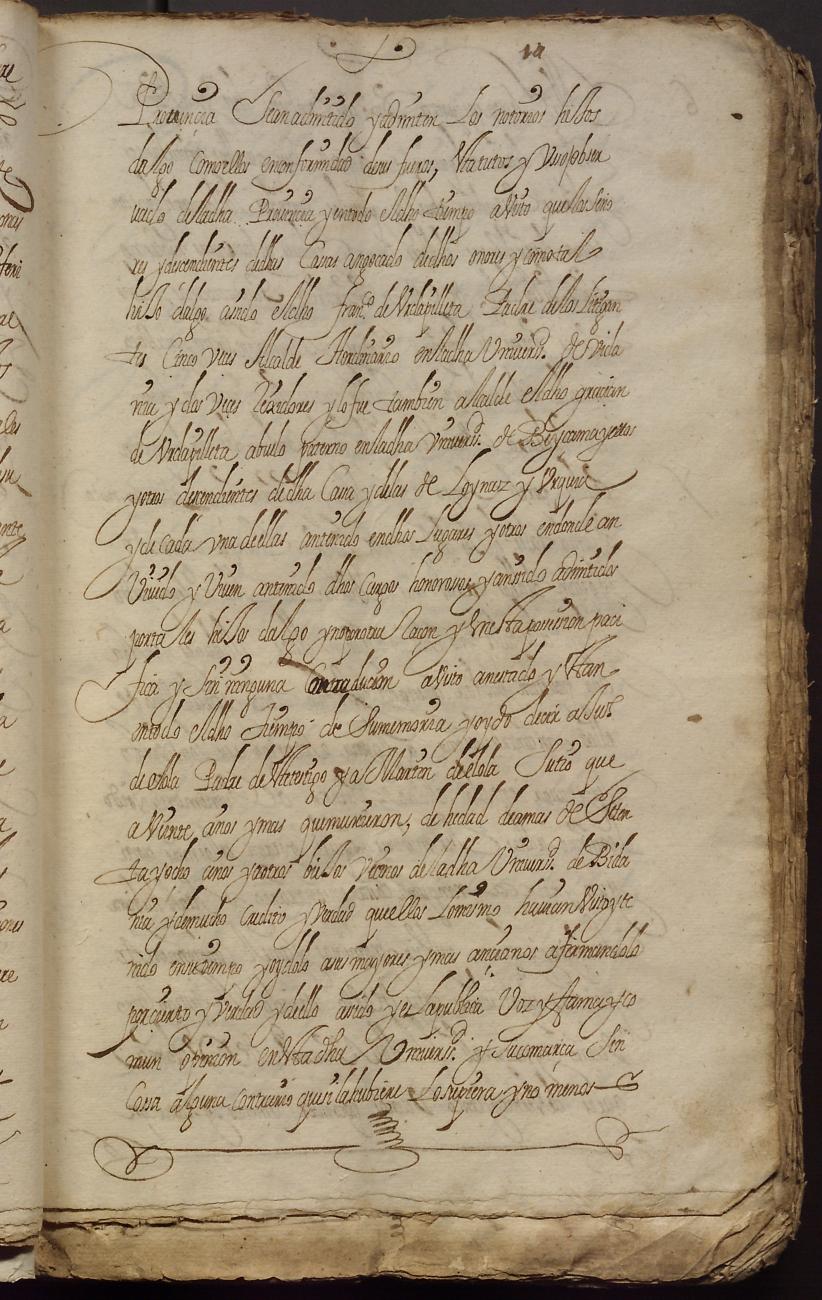 14
Prouincia sean admitido y admiten los notorios hijos
dalgo como ellos en conformidad de sus fueros, Statutos y uso obser
uado de la dha Prouincia y en todo el dho tiempo a visto que los seño
res y descendientes de dhas Casas an gocado de dhos onores y como tal
hijo dalgo a sido el dho Franco de Vrdapilleta Padre de los litigan
tes Cinco veces Alcalde Hordinario en la dha Vniuersd. de Vida
nia y dos veces Rexidores y lo fue tambien alcalde el dho gracian
de Vrdapilleta abuelo paterno en la dha vniuersd. de
y otros decendientes de dha Casa y de las de Loynaz y
y de cada vna de ellas an tenido en dhos lugares y otros en donde an
Viuido y Viuen an tenido dhos Cargos honorosos y an sido admitidos
por tales hijos dalgo y no por otra Raçon y en esta posesion paci
fica y sin ninguna Contradicion a visto an estado y stan
en todo el dho tiempo de su memoria y oydo decir a
de olola Padre de ste testigo y a Martin de olola su tio que
a Veinte años y mas que murieron, de hedad de a mas de Seten
ta y ocho años y a otros viejos Vecinos de la dha Vniuersd. de Bida
nia y de mucho credito y Verdad que ellos lo mesmo hauian Visto y te
nido en su tiempo y oydolo a sus mayores y mas ancianos afirmandolo
por cierto y Verdad y de ello a sido y es la publica Voz y fama y co
mun opinion en sta dha Vniuersd. y su comarca sin
Cosa alguna contrario que si la hubiere lo supiera y no menos